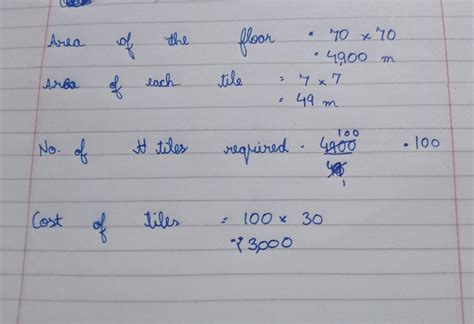 Area of the floor = 70 x 70
= 4900 m
Area of each tile = 7 x 7
= 49 m
No. of tiles required = 4900/49 = 100
100
1
Cost of tiles = 100 x 30
= ₹3,000